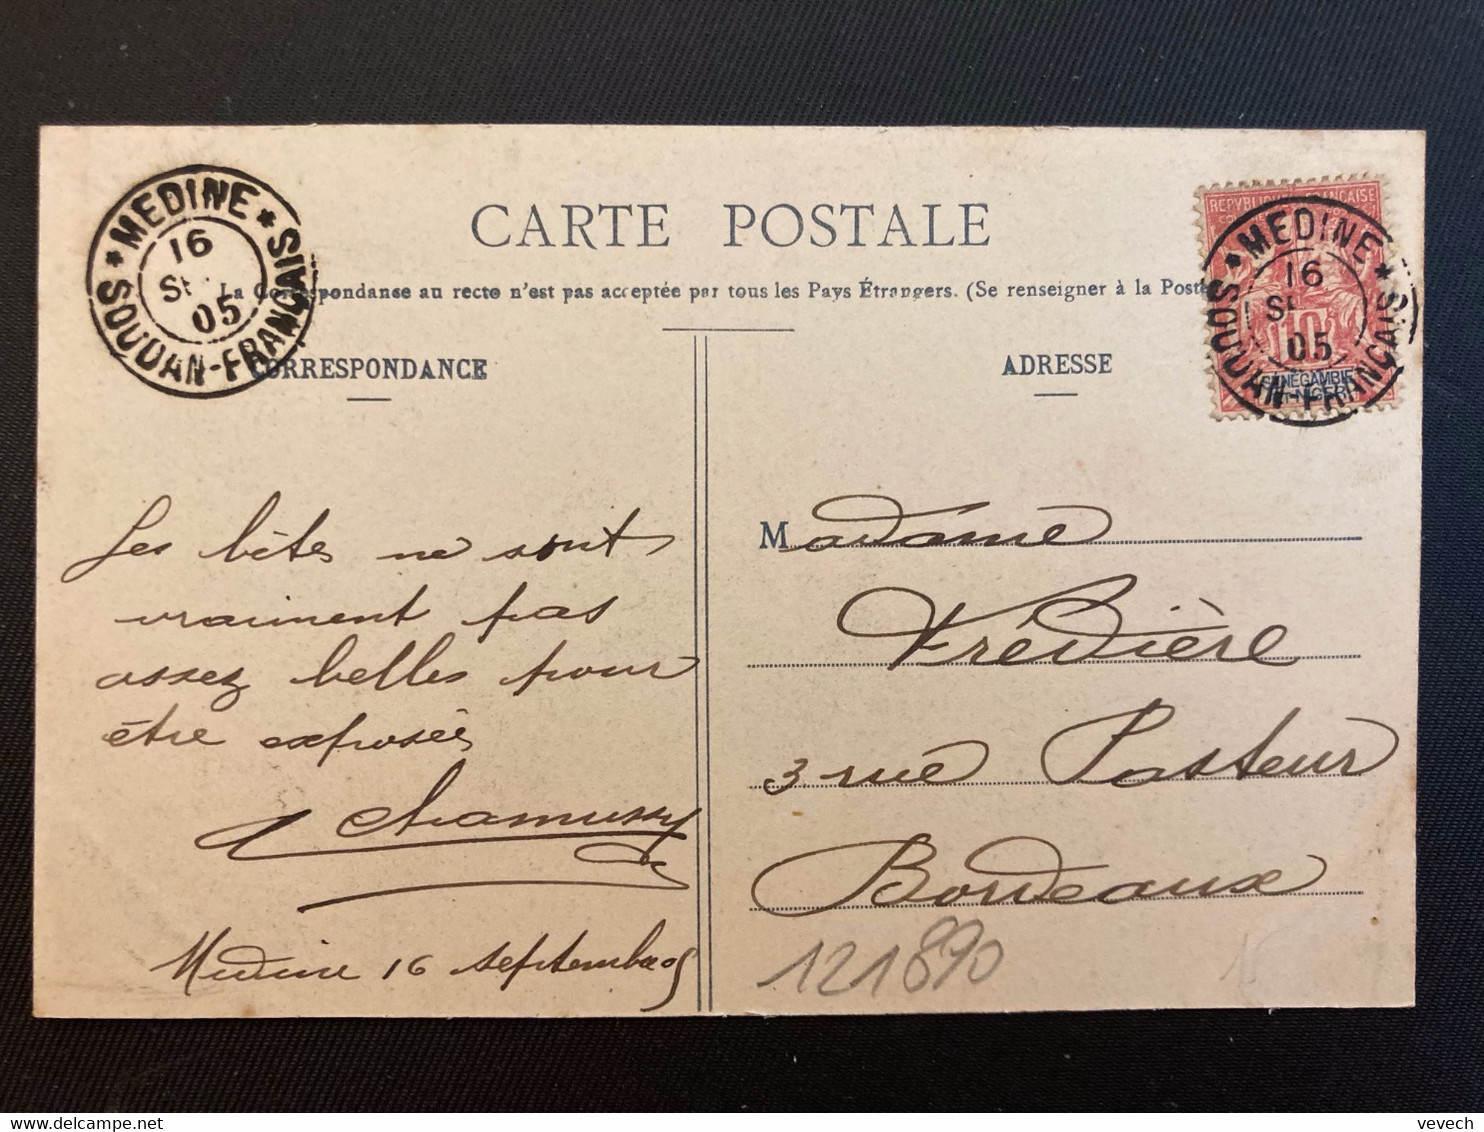 MEDINE
16
05
SOUDAN-FRANÇAIS
CARTE POSTALE
REPUBLIQUE FRANÇAISE
MEDINE
16
05
SOUDAN-FRANÇAIS
10
SÉNÉGAMBIE
ET-NIGER
La Correspondance au recto n'est pas acceptée par tous les Pays Étrangers. (Se renseigner à la Poste
CORRESPONDANCE
ADRESSE
Les bêtes ne sont
vraiment pas
assez belles pour
être exposées
Chamussy
Medine 16 septembre 05
Madame
Frédière
3 rue Pasteur
Bordeaux
121890
vevech